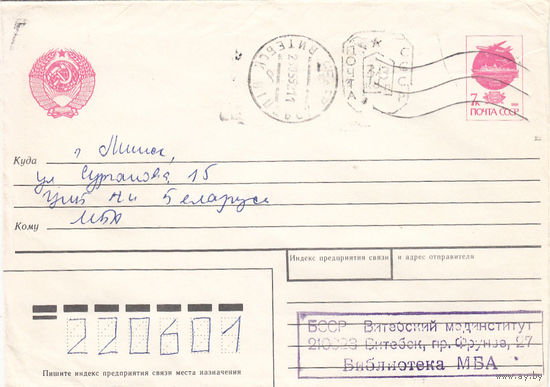 7к
ПОЧТА СССР
ВИТЕБСК
СССР
Куда г Минск,
ул Сурганова 15
Беларуси
Кому МБА
Индекс предприятия связи и адрес отправителя
220601
Пишите индекс предприятия связи места назначения
БССР Витебский мединститут
210023 Витебск, пр. Фрунзе, 27
Библиотека МБА
www.ay.by